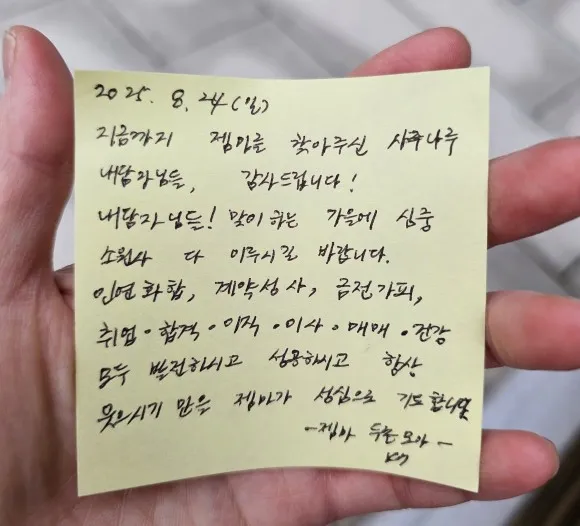 2025. 8. 24(일)
지금까지 젬마를 찾아주신 사주나루
내담자님들, 감사드립니다!
내담자님들! 맞이하는 가을에 심중
소원사 다 이루시길 바랍니다.
인연화합, 계약성사, 금전가피,
취업·합격·이직·이사·매매·건강
모두 발전하시고 성공하시고 항상
웃으시기 만을 젬마가 성심으로 기도합니다
-젬마 두손모아-